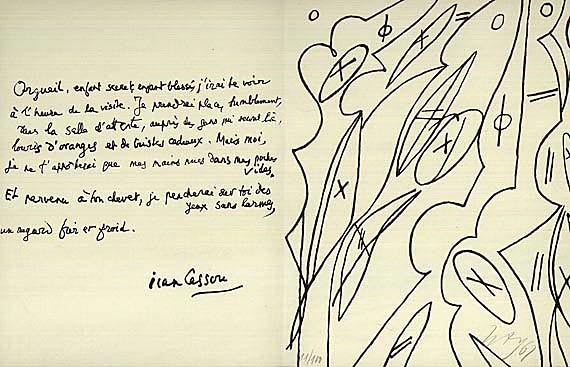 Orgueil, enfant secret, enfant blessé, j'irai te voir
à l'heure de la visite. Je prendrai place, humblement,
dans la salle d'attente, auprès des gens qui seront là,
lourds d'oranges et de tristes cadeaux. Mais moi,
je ne t'apporterai que mes mains nues dans mes poches
vides.
Et parvenu à ton chevet, je pencherai sur toi des
yeux sans larmes,
un regard fier et froid.
Jean Cassou